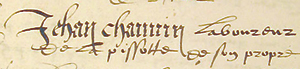 Jehan chauvin laboureur
de la pissotte de son propre